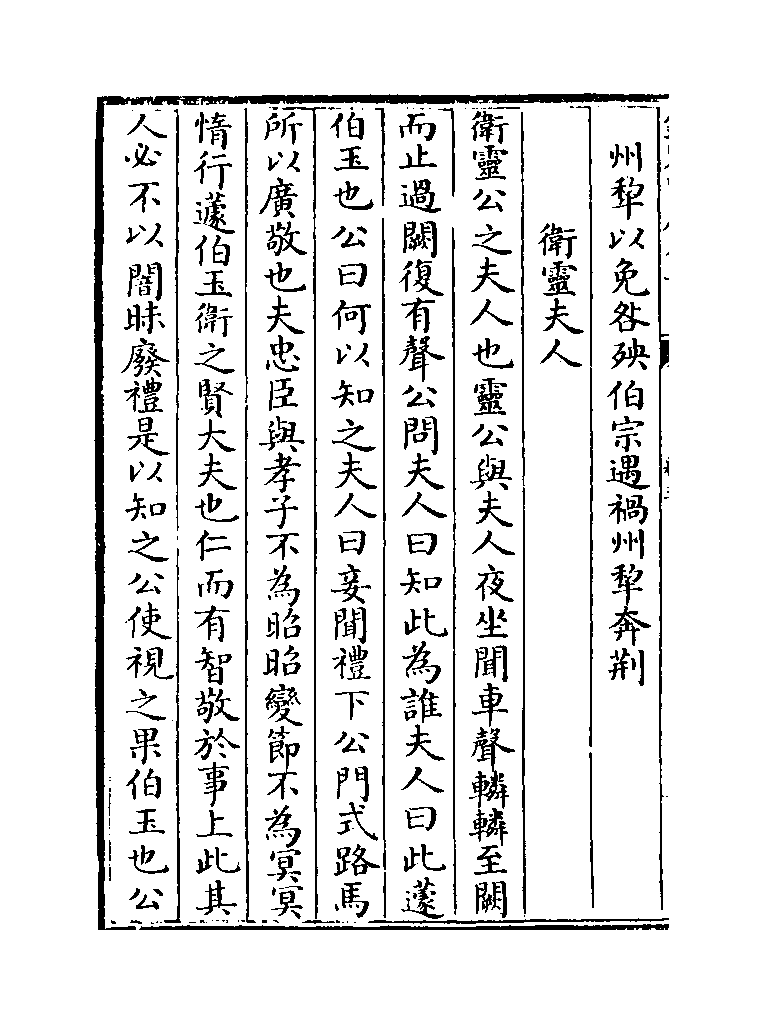 州犂以免咎殃伯宗遇禍州犂奔荆
衛靈夫人
衛靈公之夫人也靈公與夫人夜坐聞車聲轔轔至闕
而止過闕復有聲公問夫人曰知此為誰夫人曰此蘧
伯玉也公曰何以知之夫人曰妾聞禮下公門式路馬
所以廣敬也夫忠臣與孝子不為昭昭變節不為冥冥
惰行蘧伯玉衛之賢大夫也仁而有智敬於事上此其
人必不以闇昧廢禮是以知之公使視之果伯玉也公